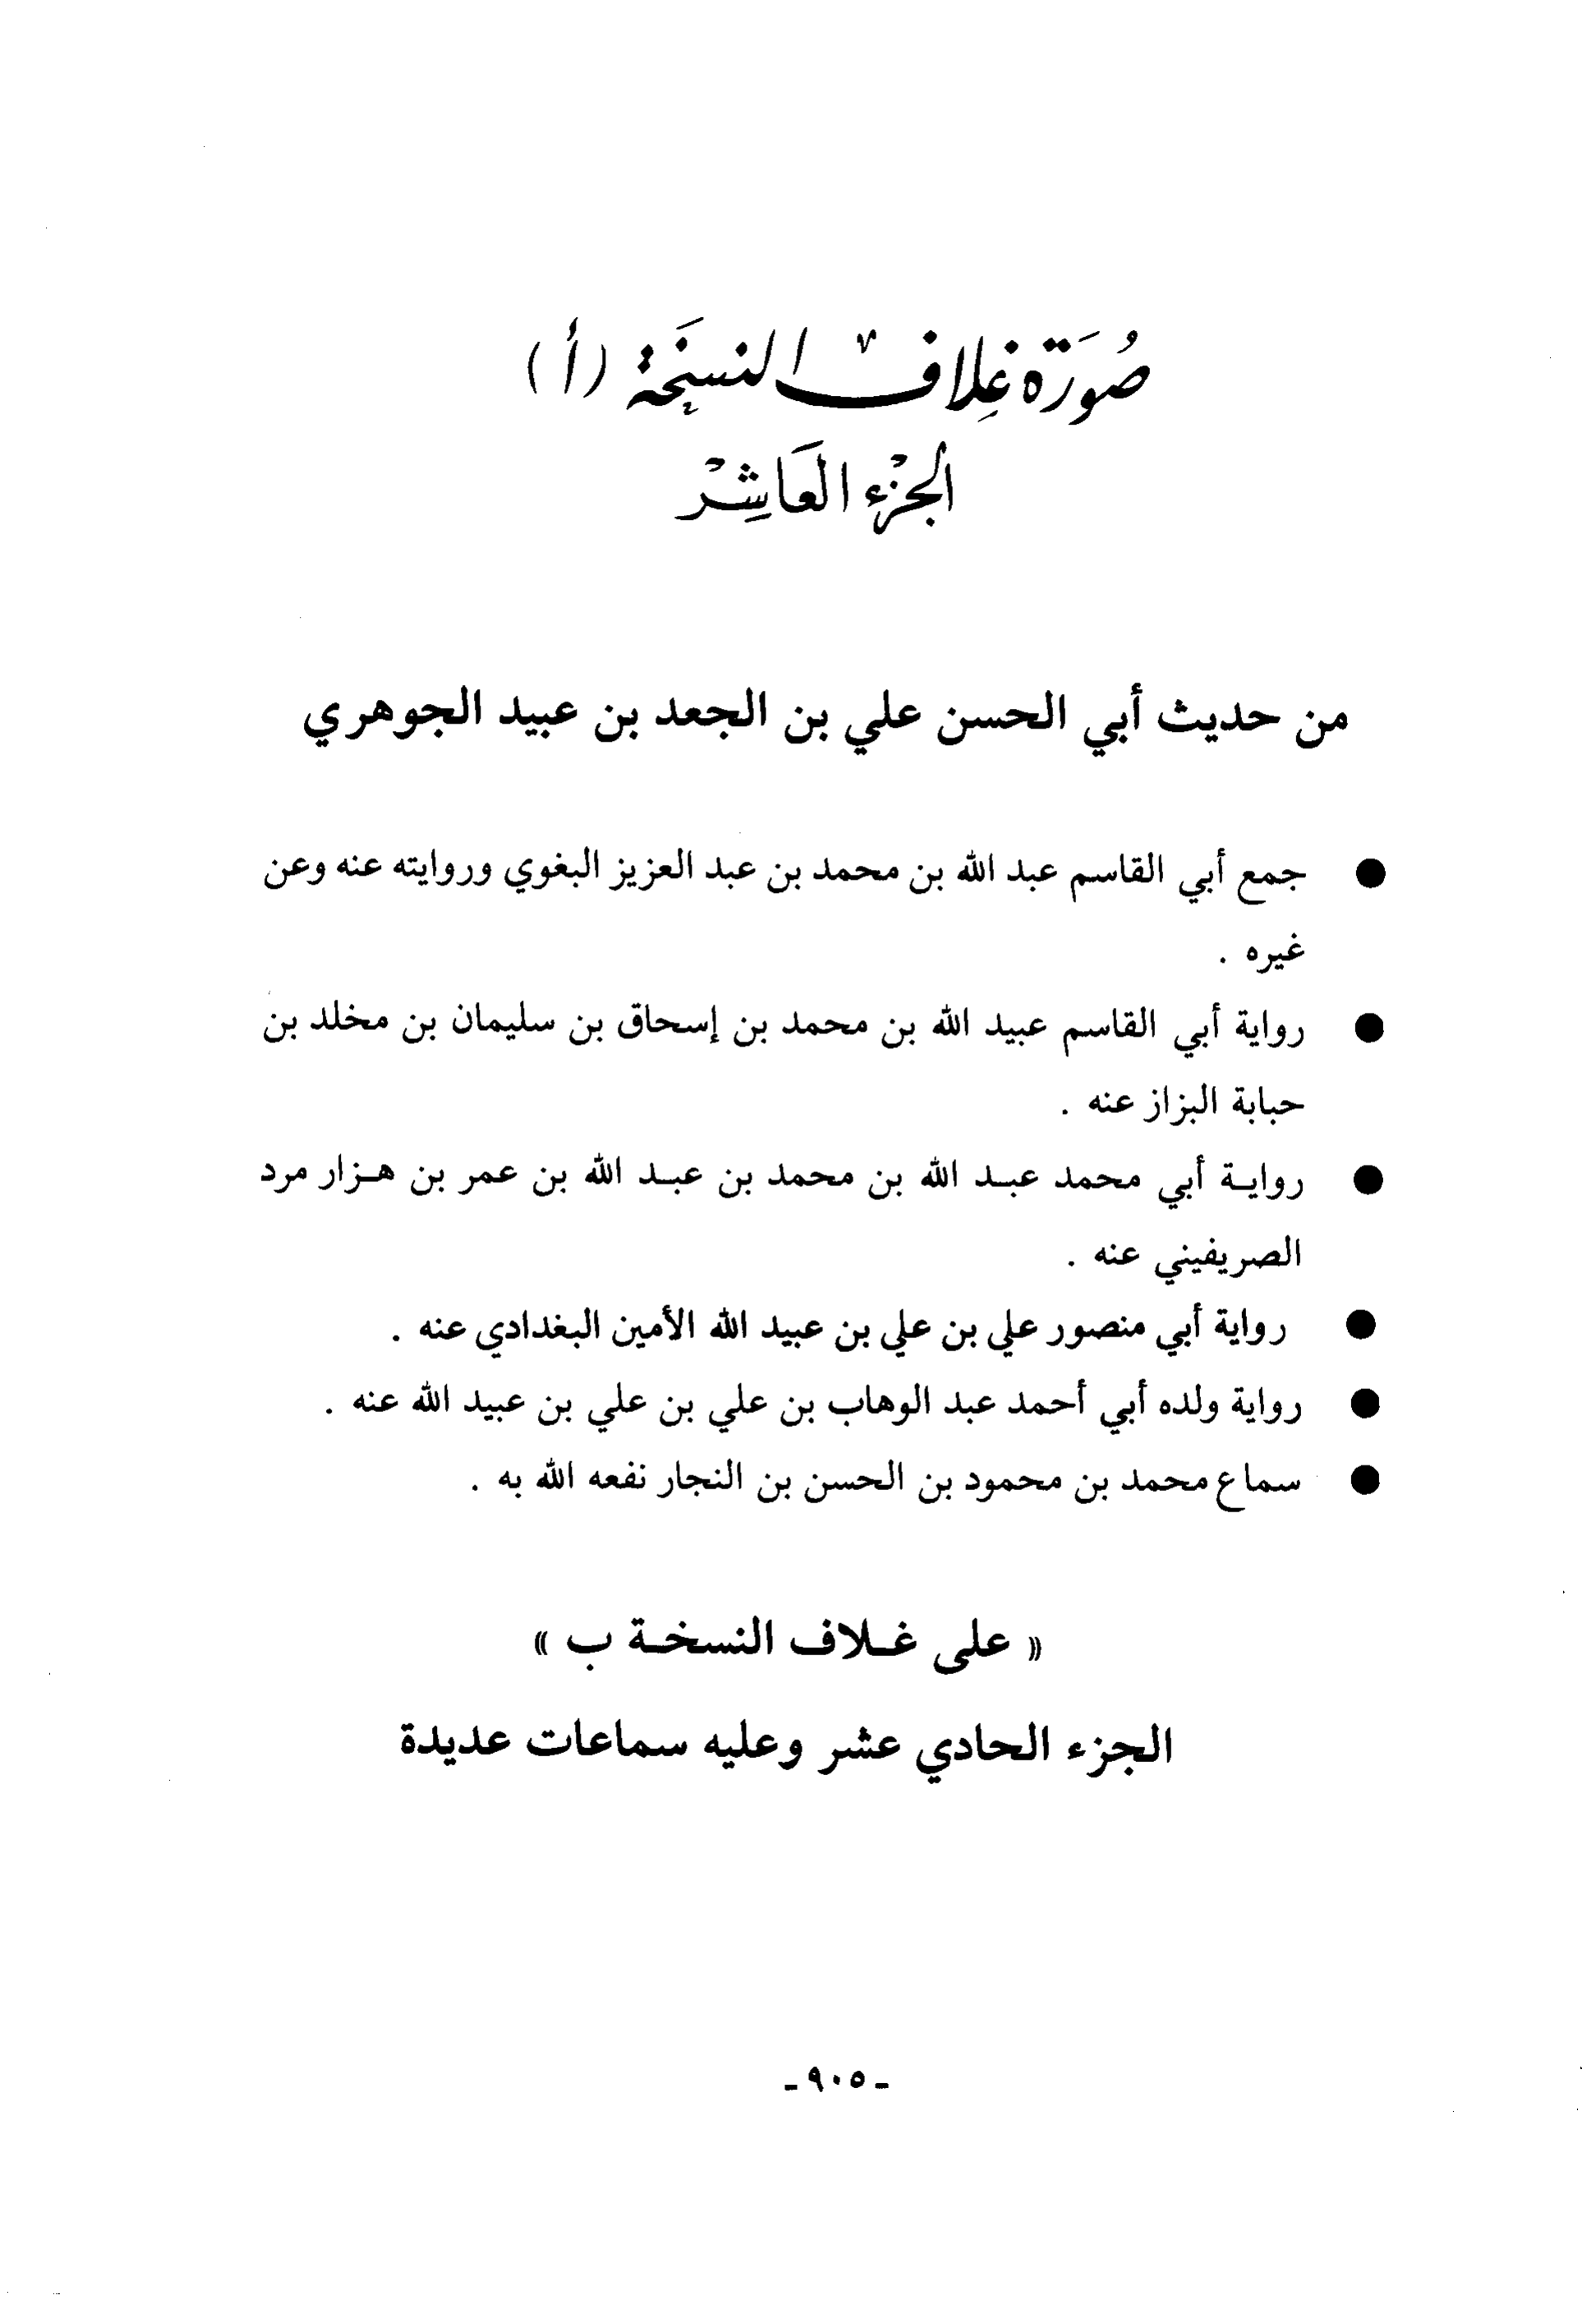 صُورَة غِلاف النسخَة (أ)
الجزْء العَاشِرْ
من حديث أبي الحسن علي بن الجعد بن عبيد الجوهري
● جمع أبي القاسم عبد الله بن محمد بن عبد العزيز البغوي وروايته عنه وعن
غيره .
● رواية أبي القاسم عبيد الله بن محمد بن إسحاق بن سليمان بن مخلد بن
حبابة البزاز عنه .
● روايـة أبي محمد عبـد الله بن محمد بن عبـد الله بن عمر بن هـزار مرد
الصريفيني عنه .
● رواية أبي منصور علي بن علي بن عبيد الله الأمين البغدادي عنه .
● رواية ولده أبي أحمد عبد الوهاب بن علي بن علي بن عبيد الله عنه .
● سماع محمد بن محمود بن الحسن بن النجار نفعه الله به .
« على غـلاف النسخـة ب »
الجزء الحادي عشر وعليه سماعات عديدة
ـ ٩٠٥ ـ